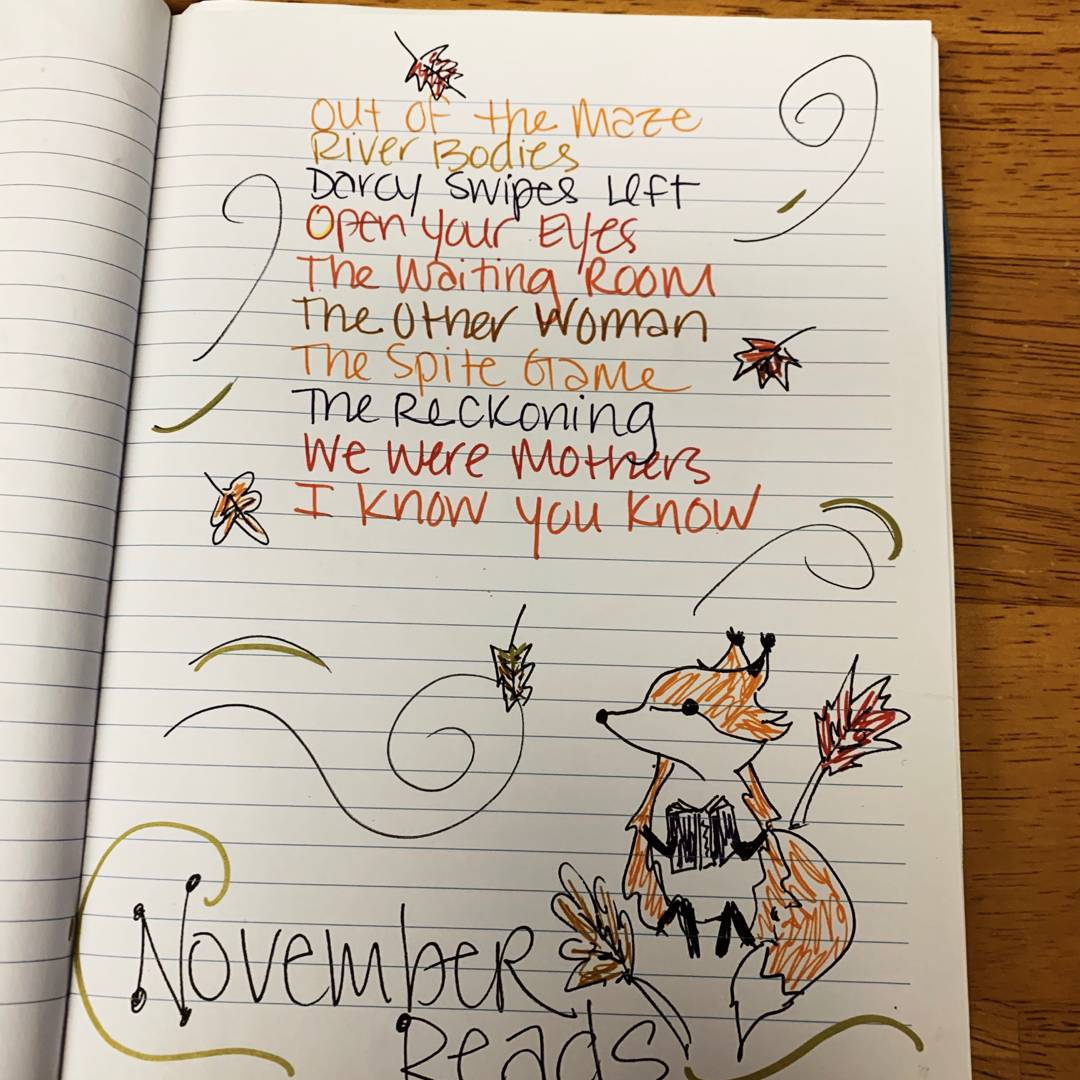 Out of the Maze
River Bodies
Darcy Swipes Left
Open your Eyes
The Waiting Room
The Other Woman
The Spite Game
The Reckoning
We Were Mothers
I know you know
November
Reads